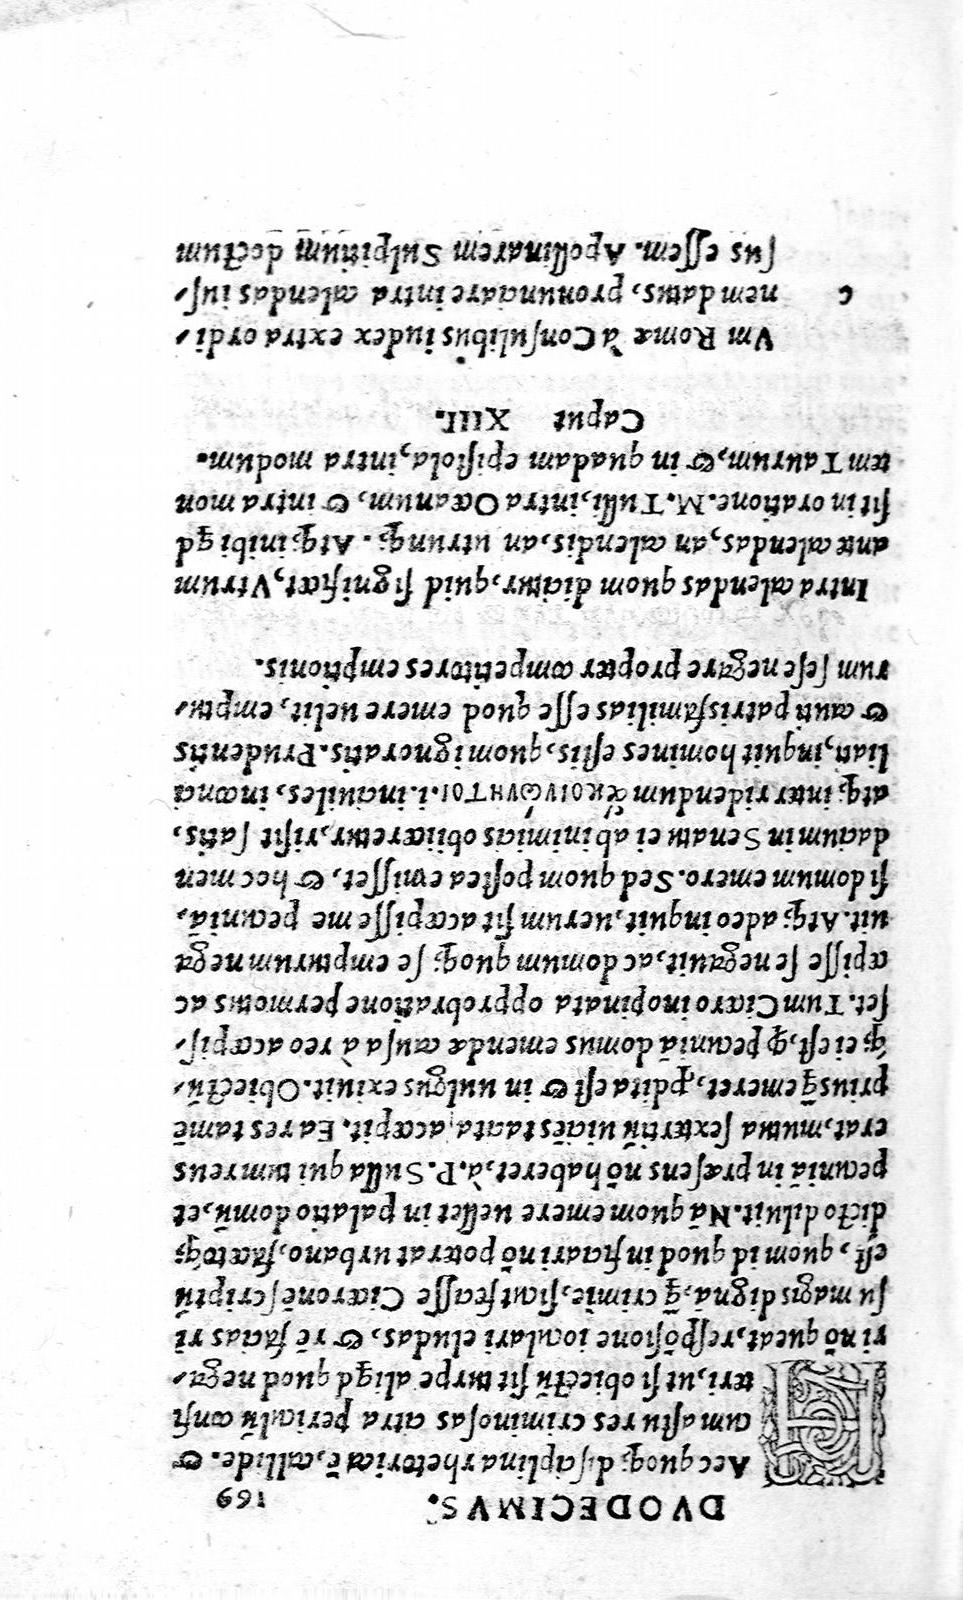 DVODECIMVS. 169
HAec quoq; disciplina rhetoricæ ē, callide, &
cum astu res criminosas citra periculū confi
teri, ut si obiectū sit turpe aliqd quod nega-
ri nō queat, respōsione ioculari eludas, & rē facias ri
su magis dignā, q̄ crimie, sicut fecisse Ciceronē scriptū
est, quom id quod inficiari nō poterat urbano, facetoq;
dicto diluit. Nā quom emere uellet in palatio domū, et
pecuniā in præsens nō haberet, à. P. Sulla qui tum reus
erat, mutua sextertiū uicies tacita accepit. Ea res tamē
prius q̄ emeret, pdita est & in uulgus exiuit. Obiectū-
q; ei est, q̄ pecuniā domus emendæ causa à reo accepis-
set. Tum Cicero inopinata opprobratione permotus ac
cepisse se negauit, ac domum quoq; se empturum nega
uit. Atq; adeo inquit, uerum sit accepisse me pecuniā,
si domum emero. Sed quom postea emisset, & hoc men
dacium in Senatu ei ab inimicis obiiceretur, risit satis,
atq; inter ridendum ἀκοινώνητοι. i. inciuiles, incona
liati, inquit homines estis, quom ignoratis. Prudentis
& cauti patrisfamilias esse quod emere uelit, emptu-
rum sese negare propter competitores emptionis.
Intra calendas quom dicitur, quid significet, Vtrum
ante calendas, an calendis, an utrunq;. Atq; inibi qd
sit in oratione. M. Tulli, intra Oceanum, & intra mon
tem Taurum, & in quadam epistola, intra modum.
Caput XIII.
c Vm Romæ à Consulibus iudex extra ordi-
nem datus, pronunciare intra calendas ius-
sus essem. Apollinarem Sulpitium doctum